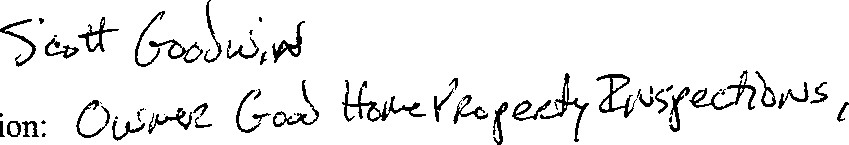 Scott Goodwin
ion: Owner Good Home Property Inspections,